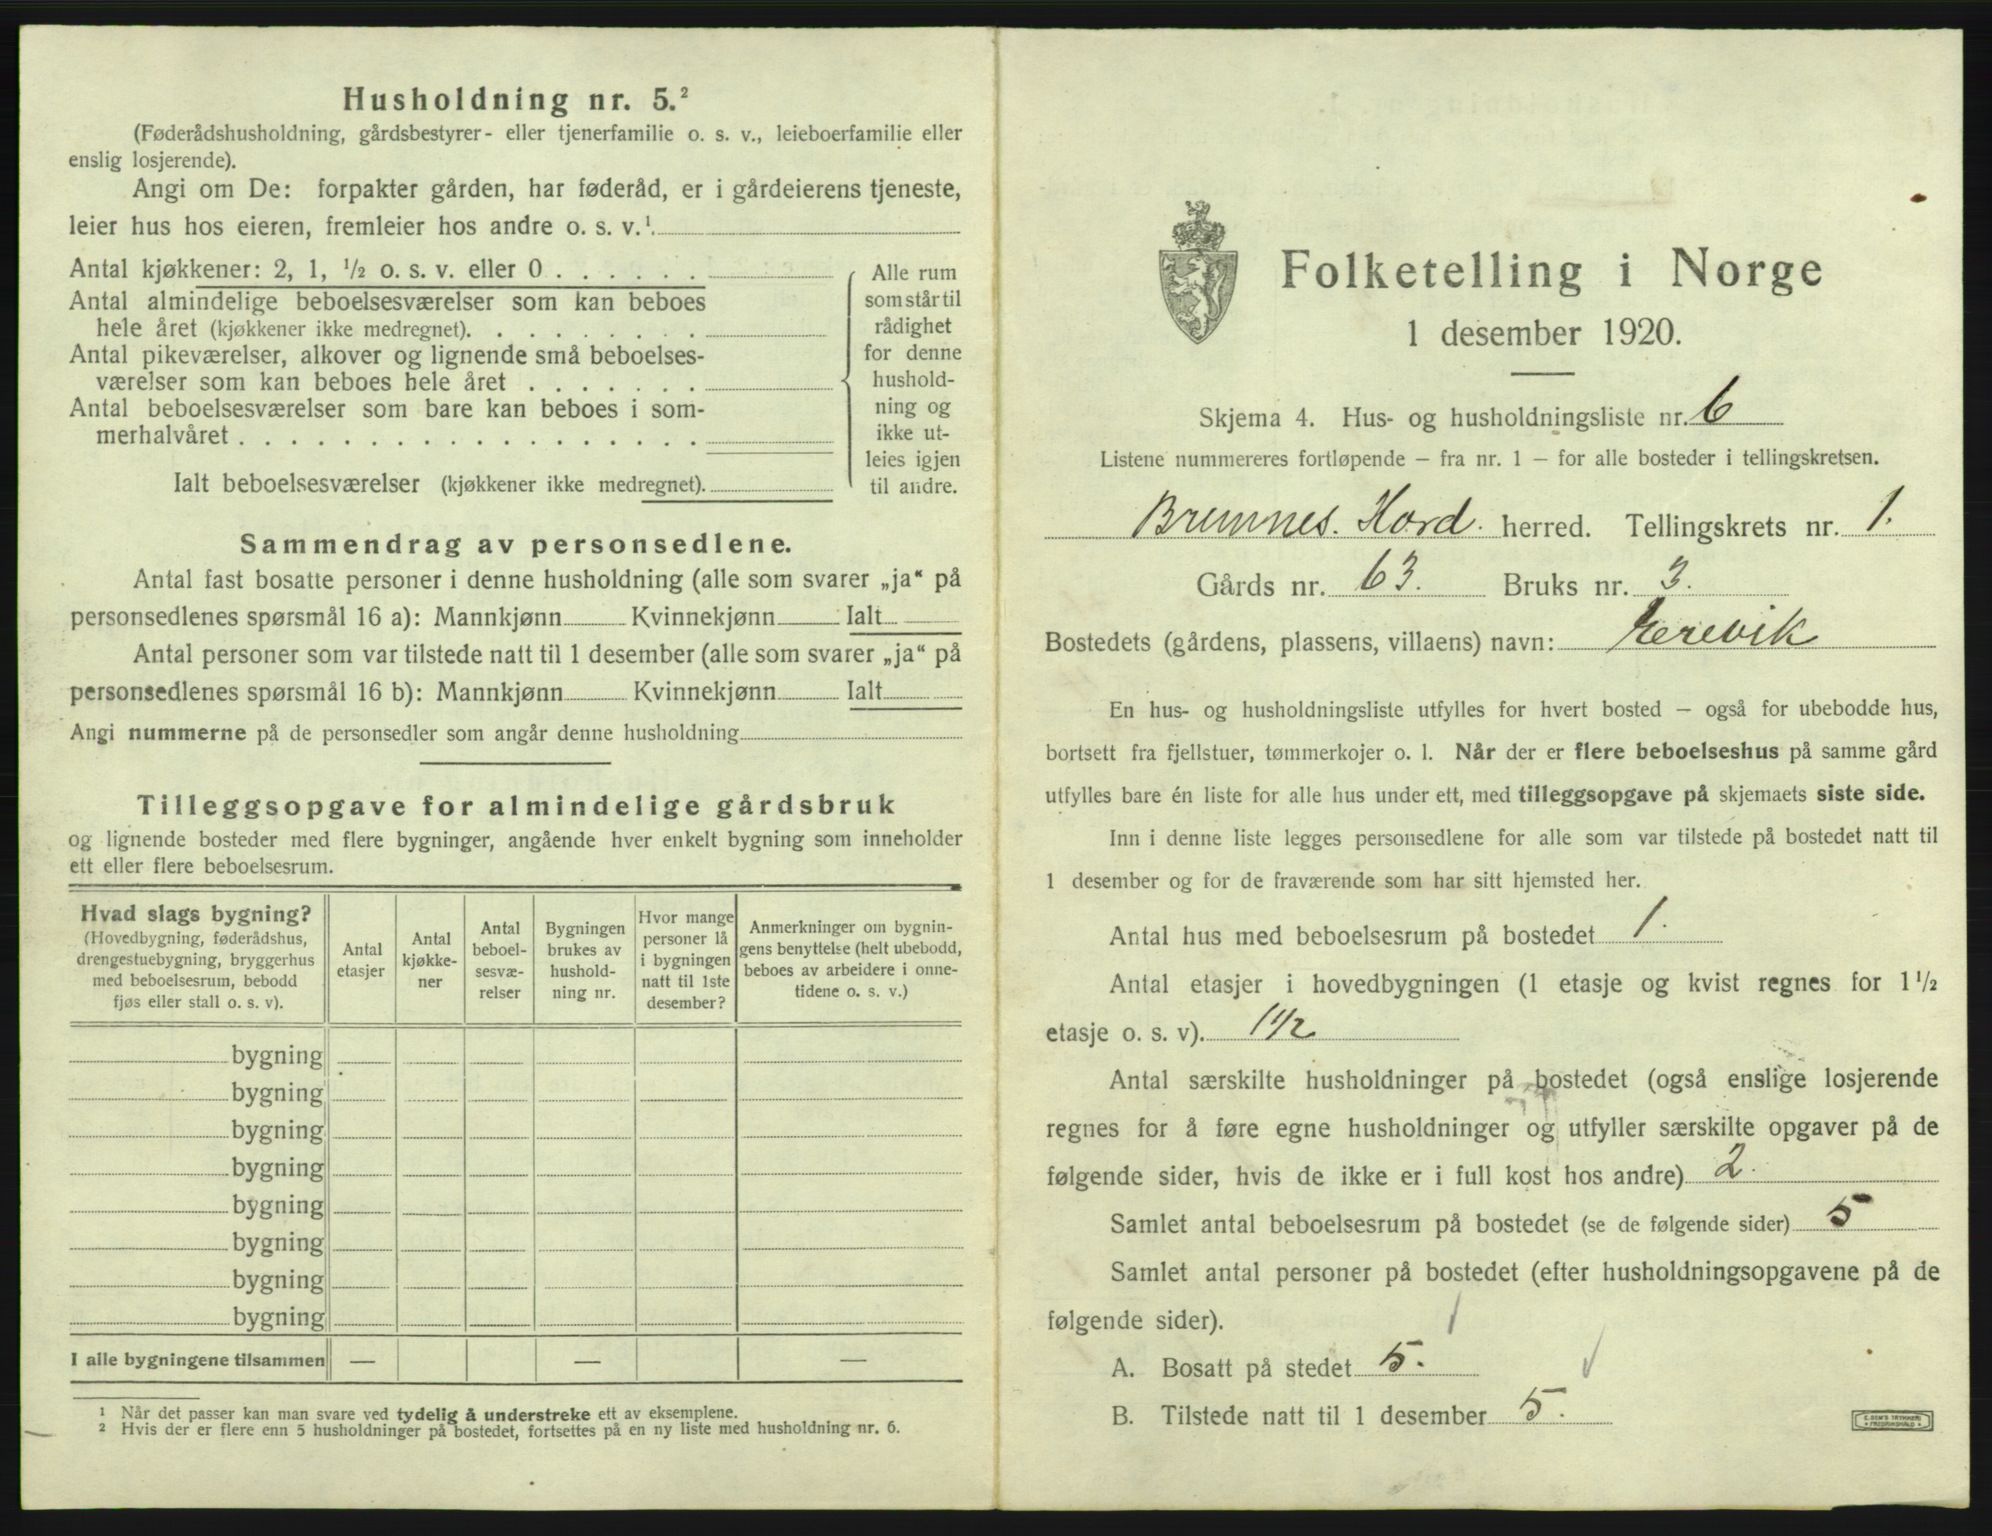 Husholdning nr. 5.²
(Føderådshusholdning, gårdsbestyrer- eller tjenerfamilie o. s. v., leieboerfamilie eller
enslig losjerende).
Angi om De: forpakter gården, har føderåd, er i gårdeierens tjeneste,
leier hus hos eieren, fremleier hos andre o. s. v.¹
Antal kjøkkener: 2, 1, ½ o. s. v. eller 0 . . . . . .
Antal almindelige beboelsesværelser som kan beboes
hele året (kjøkkener ikke medregnet). . . . . . . . .
Antal pikeværelser, alkover og lignende små beboelses-
værelser som kan beboes hele året . . . . . . .
Antal beboelsesværelser som bare kan beboes i som-
merhalvåret . . . . . . . . . . . . . . . . . .
Ialt beboelsesværelser (kjøkkener ikke medregnet).
Alle rum
som står til
rådighet
for denne
hushold-
ning og
ikke ut-
leies igjen
til andre.
Sammendrag av personsedlene.
Antal fast bosatte personer i denne husholdning (alle som svarer „ja“ på
personsedlenes spørsmål 16 a): Mannkjønn Kvinnekjønn Ialt
Antal personer som var tilstede natt til 1 desember (alle som svarer „ja“ på
personsedlenes spørsmål 16 b): Mannkjønn Kvinnekjønn Ialt
Angi nummerne på de personsedler som angår denne husholdning
Tilleggsopgave for almindelige gårdsbruk
og lignende bosteder med flere bygninger, angående hver enkelt bygning som inneholder
ett eller flere beboelsesrum.
Hvad slags bygning?
(Hovedbygning, føderådshus,
drengestuebygning, bryggerhus
med beboelsesrum, bebodd
fjøs eller stall o. s. v).
Antal
etasjer
Antal
kjøkke-
ner
Antal
beboel-
sesvæ-
relser
Bygningen
brukes av
hushold-
ning nr.
Hvor mange
personer lå
i bygningen
natt til 1ste
desember?
Anmerkninger om bygnin-
gens benyttelse (helt ubebodd,
beboes av arbeidere i onne-
tidene o. s. v.)
bygning
bygning
bygning
bygning
bygning
bygning
bygning
bygning
I alle bygningene tilsammen — — —
¹ Når det passer kan man svare ved tydelig å understreke ett av eksemplene.
² Hvis der er flere enn 5 husholdninger på bostedet, fortsettes på en ny liste med husholdning nr. 6.
Folketelling i Norge
1 desember 1920.
Skjema 4. Hus- og husholdningsliste nr. 6
Listene nummereres fortløpende – fra nr. 1 – for alle bosteder i tellingskretsen.
Bremnes. Hord. herred. Tellingskrets nr. 1.
Gårds nr. 63. Bruks nr. 3.
Bostedets (gårdens, plassens, villaens) navn:
En hus- og husholdningsliste utfylles for hvert bosted – også for ubebodde hus,
bortsett fra fjellstuer, tømmerkojer o. l. Når der er flere beboelseshus på samme gård
utfylles bare én liste for alle hus under ett, med tilleggsopgave på skjemaets siste side.
Inn i denne liste legges personsedlene for alle som var tilstede på bostedet natt til
1 desember og for de fraværende som har sitt hjemsted her.
Antal hus med beboelsesrum på bostedet 1.
Antal etasjer i hovedbygningen (1 etasje og kvist regnes for 1½
etasje o. s. v). 1½
Antal særskilte husholdninger på bostedet (også enslige losjerende
regnes for å føre egne husholdninger og utfyller særskilte opgaver på de
følgende sider, hvis de ikke er i full kost hos andre) 2.
Samlet antal beboelsesrum på bostedet (se de følgende sider) 5
Samlet antal personer på bostedet (efter husholdningsopgavene på de
følgende sider).
A. Bosatt på stedet 5.
B. Tilstede natt til 1 desember 5.